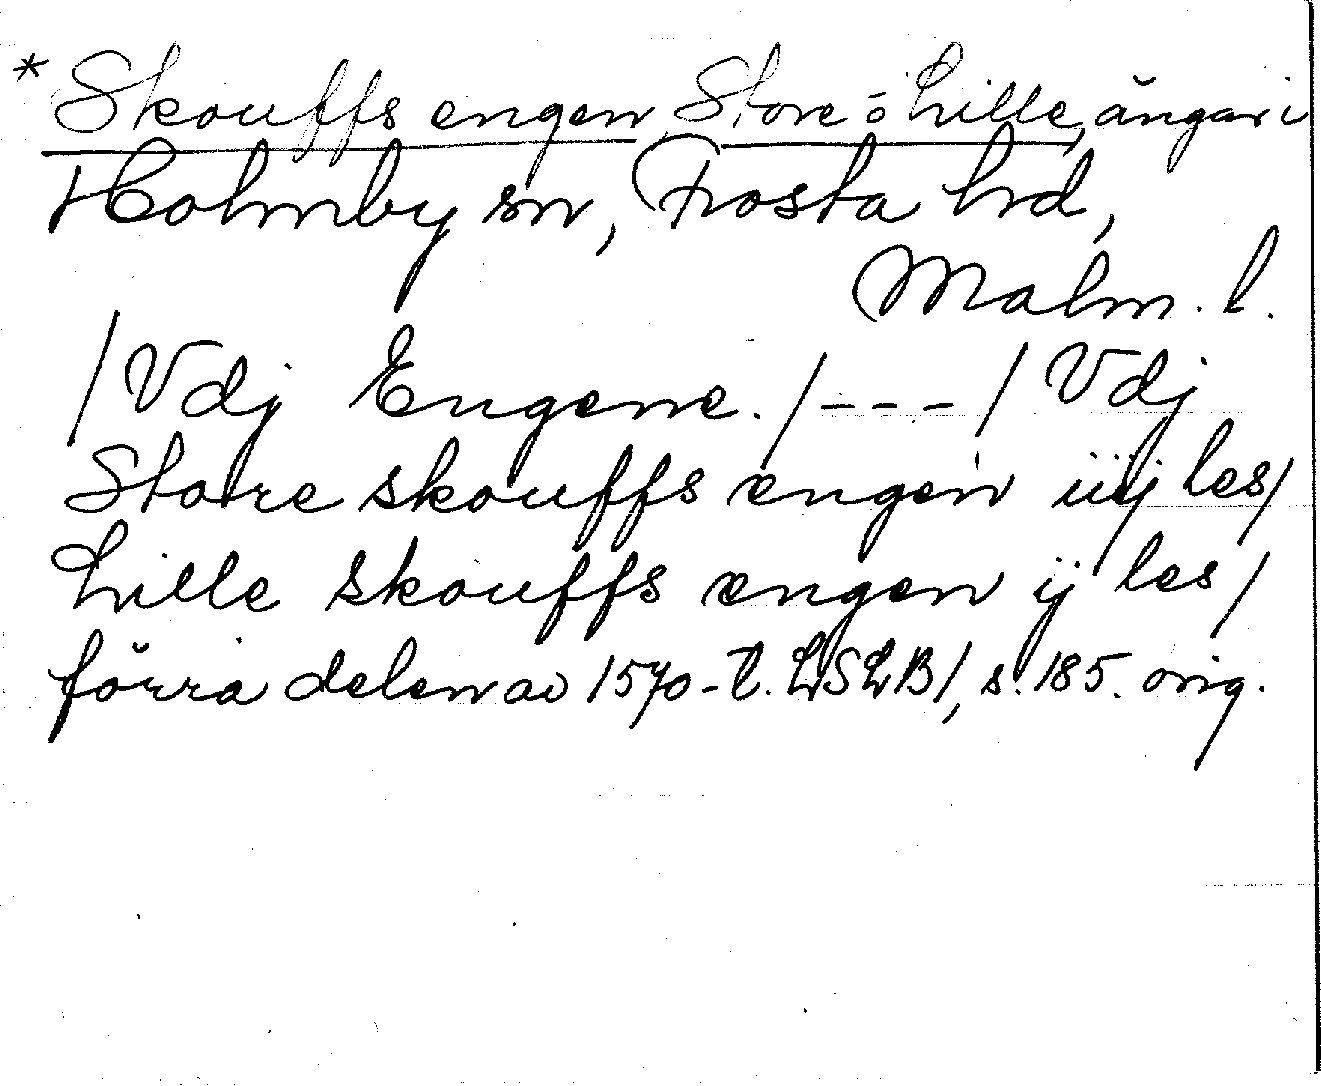 * Skouffs engen, Store o Lille, ängar i
Holmby sn, Frosta hd,
Malm. l.
/Vdj Engene. /---/ Vdj
Store skouffs engen iiij les/
Lille skouffs engen ij les/
förra delen av 1570-t. LSLB/, s. 185. orig.